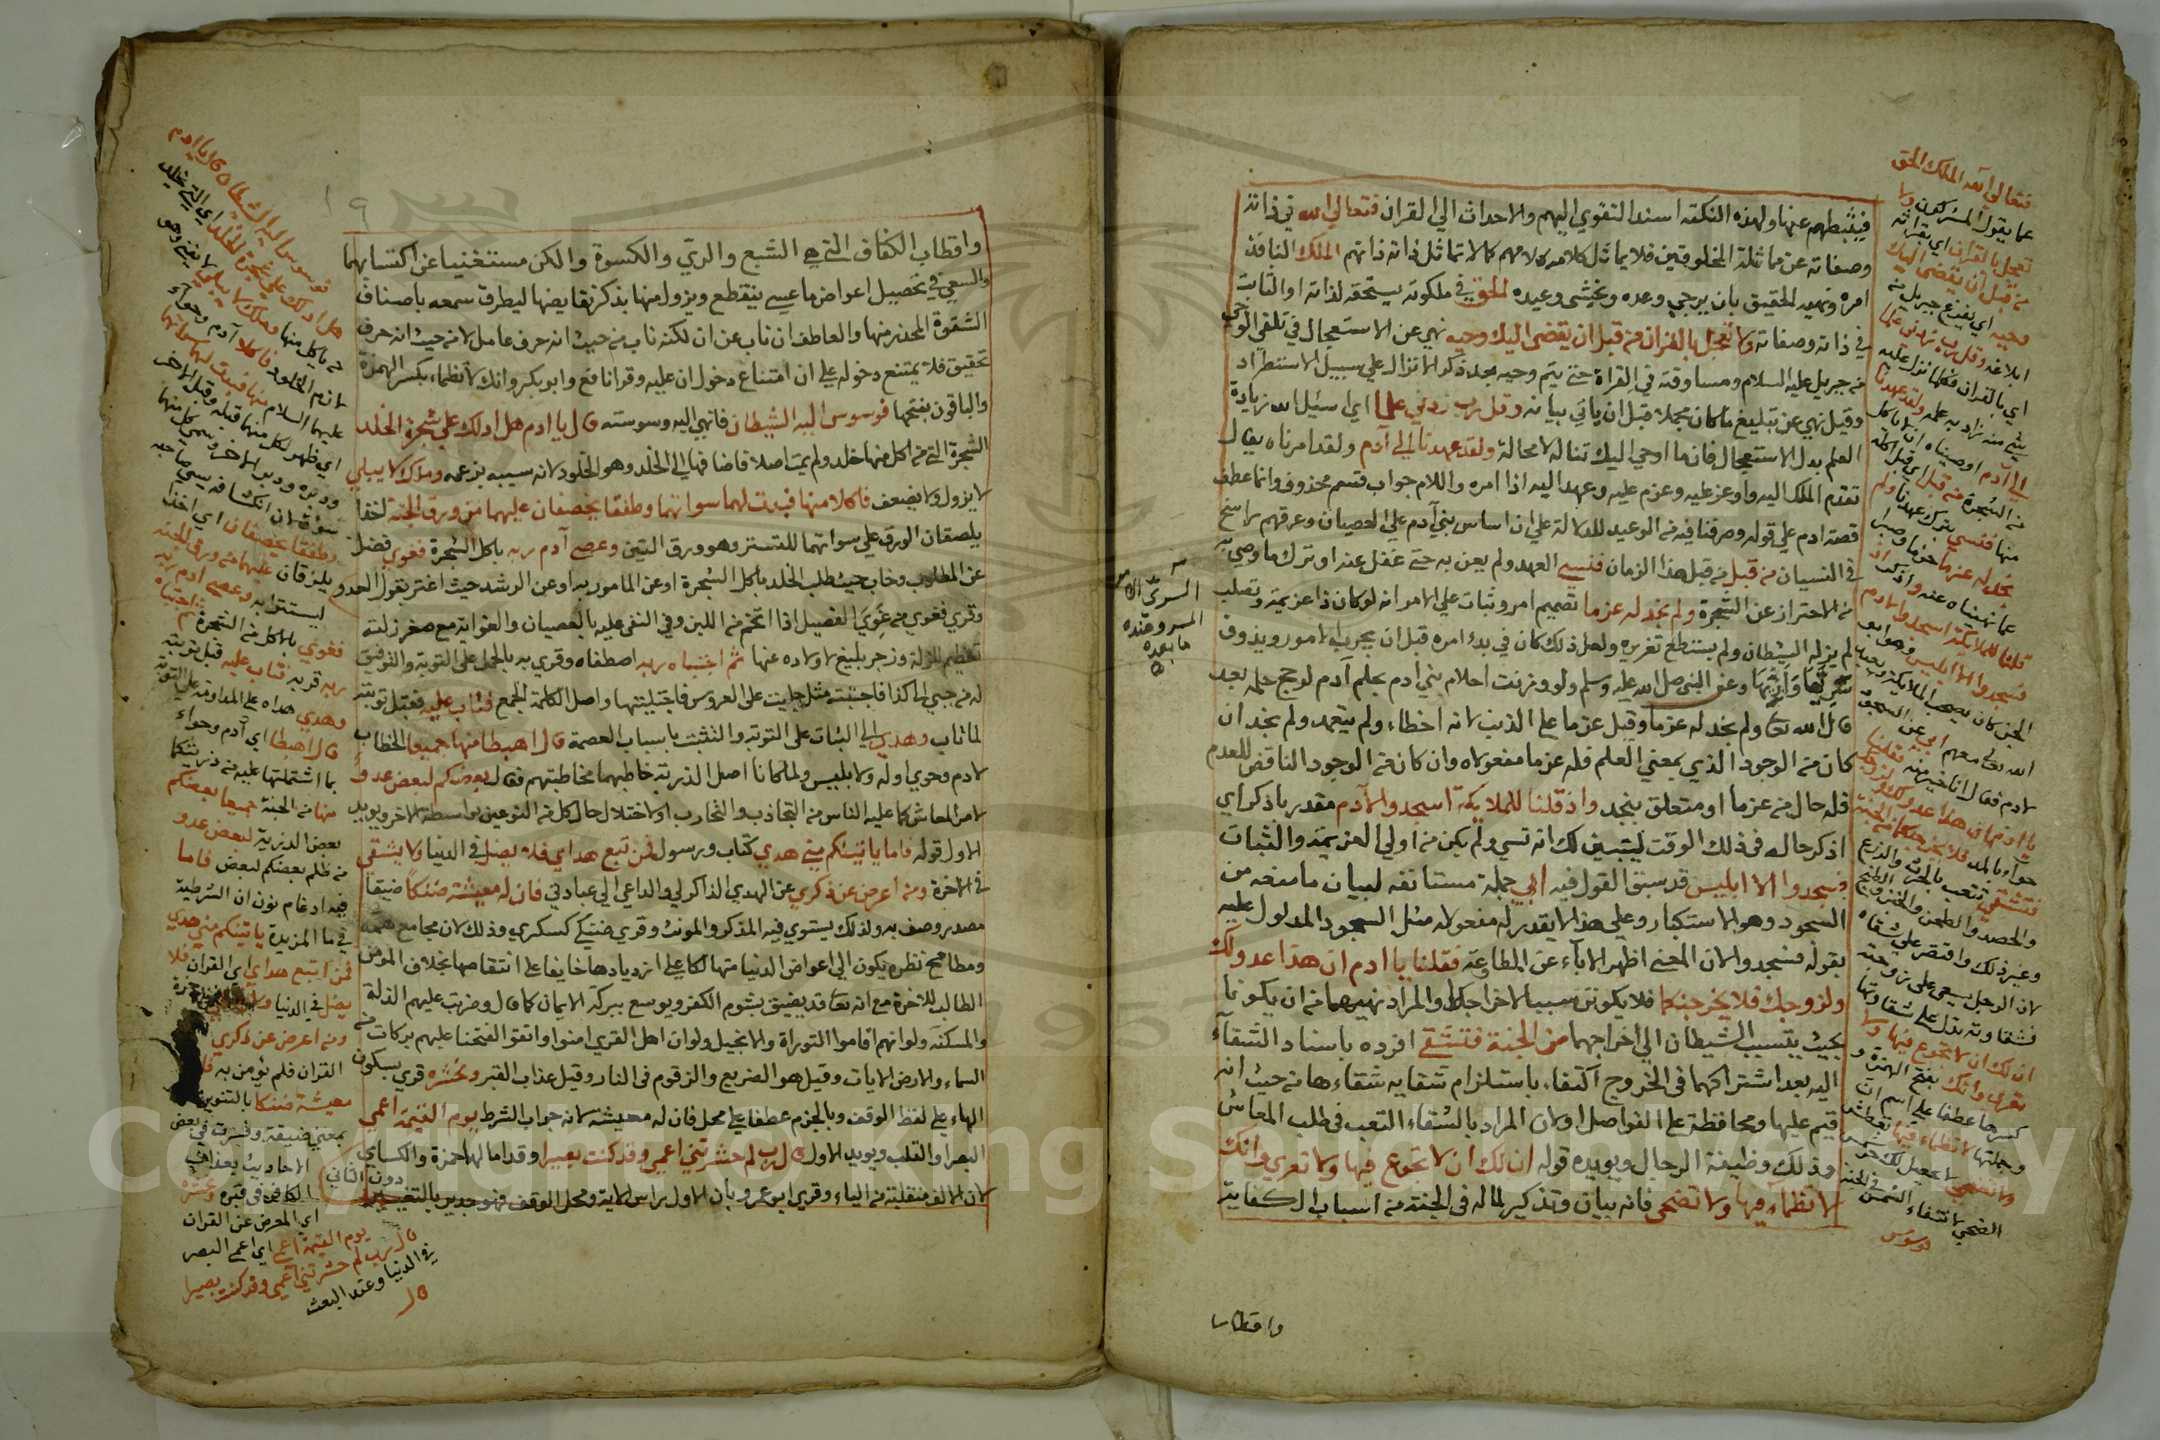 فيثبطهم عنها ولهذه النكتة اسند التقوي اليهم والاحداث الي القران فتعالي الله في ذاته
وصفاته عن مماثلة المخلوقين فلا يماثل كلامه كلامهم كما لا تماثل ذاته ذاتهم الملك النافذ
امره ونهيه الحقيق بان يرجي وعده ويخشي وعيده الحق في ملكوته يستحقه لذاته او الثابت
في ذاته وصفاته ولا تعجل بالقران من قبل ان يقضي اليك وحيه نهي عن الاستعجال في تلقي الوحي
من جبريل عليه السلام ومساوقته في القراة حتي يتم وحيه بعد ذكر الانزال علي سبيل الاستطراد
وقيل نهي عن تبليغ ما كان مجملا قبل ان ياتي بيانه وقل رب زدني علما اي اسئل الله زيادة
العلم بدل الاستعجال فان ما اوحي اليك تناله لا محالة ولقد عهدنا الي آدم ولقد امرناه يقال
تقدم الملك اليه واوعز عليه وعزم عليه وعهد اليه اذا امره واللام جواب قسم محذوف وانما عطف
قصة ادم علي قوله وصرفنا فيه من الوعيد للدلالة علي ان اساس بني آدم علي العصيان وعرقهم راسخ
في النسيان من قبل من قبل هذا الزمان فنسي العهد ولم يعن به حتي غفل عنه او ترك ما وصي به
من الاحتراز عن الشجرة ولم نجد له عزما تصميم امر وثبات علي الامر انه لو كان ذا عزيمة وتصلب
لم يزله الشيطان ولم يستطع تغريره ولعل ذلك كان في بدء امره قبل ان يجرب الامور ويذوق
شريها واريها وعن النبي صلي الله عليه وسلم لو وزنت احلام بني ادم بحلم آدم لرجح حلمه بعد
قال الله تعا ولم نجد له عزما وقيل عزما علي الذنب لانه اخطاء ولم يتعمد ولم نجد ان
كان من الوجود الذي بمعني العلم فله عزما مفعولاه وان كان من الوجود الناقض للعدم
فله حال من عزما او متعلق بنجد واذ قلنا للملايكة اسجدوا لآدم مقدر باذكر اي
اذكر حاله في ذلك الوقت ليتبين لك انه نسي ولم يكن من اولي العزيمة والثبات
فسجدوا الا ابليس قد سبق القول فيه ابي جملة مستانفه لبيان ما منعه من
السجود وهو الاستكبار وعلي هذا لا يقدر له مفعول مثل السجود المدلول عليه
بقوله فسجدوا لان المعني اظهر الاباء عن المطاوعة فقلنا يا ادم ان هذا عدو لك
ولزوجك فلا يخرجنكما فلا يكونن سببا لاخراجكما والمراد نهيهما من ان يكونا
بحيث يتسبب الشيطان الي اخراجهما من الجنة فتشقي افرده باسناد الشقاء
اليه بعد اشتراكهما في الخروج اكتفاء باستلزام شقايه شقاءها من حيث انه
قيم عليها ومحافظة علي الفواصل او لان المراد بالشقاء التعب في طلب المعاش
وذلك وظيفة الرجال ويويده قوله ان لك ان لا تجوع فيها ولا تعري وانك
لا تظماء فيها ولا تضحي فانه بيان وتذكير لما له في الجنة من اسباب الكفاية
فتعالي الله الملك الحق
عما يقول المشركون ولا
تعجل بالقران اي بقراته
من قبل ان يقضي اليك
وحيه اي يفرغ جبريل من
ابلاغه وقل رب زدني علما
اي بالقران فكلما نزل عليه
شئ منه زاد به علمه ولقد عهدنا
الي آدم اوصيناه ان لا ياكل
من الشجرة من قبل اي قبل اكله
منها فنسي ترك عهدنا ولم
نجد له عزما حزما وصبرا
عما نهيناه عنه واذكر اذ
قلنا للملايكة اسجدوا لادم
فسجدوا الا ابليس وهو ابو
الجن كان يصحب الملايكة ويعبد
الله تعا معهم ابي عن السجود
لادم فقال انا خير منه فقلنا
يا ادم ان هذا عدو لك ولزوجك
حواء بالمد فلا يخرجنكما من الجنة
فتشقي تتعب بالحرث والزرع
والحصد والطحن والخبز والطبخ
وغير ذلك واقتصر علي شقاه
لان الرجل يسعي علي زوجته
ان لك ان لا تجوع فيها ولا
تعري وانك بفتح الهمزة و
كسرها عطفا علي اسم ان
وجملتها لا تظماء فيها تعطش
ولا تضحي لا يحصل لك حر شمس
الضحي لانتفاء الشمس في الجنة
فوسوس
واقطاب
واقطاب الكفاف التي هي الشبع والري والكسوة والكن مستغنيا عن اكتسابها
والسعي في تحصيل اعواض ما عسي ينقطع ويزول منها بذكر نقايضها ليطرق سمعه باصناف
الشقوة المحذر منها والعاطف ان ناب عن ان لكنه ناب من حيث انه حرف عامل لا من حيث انه حرف
تحقيق فلا يمتنع دخوله علي ان امتناع دخول ان عليه وقرا نافع وابو بكر وانك لا تظماء بكسر الهمزة
والباقون بفتحها فوسوس اليه الشيطان فانهي اليه وسوسته قال يا ادم هل ادلك علي شجرة الخلد
الشجرة التي من اكل منها خلد ولم يمت اصلا فاضافها الي الخلد وهو الخلود لانه سببه بزعمه وملك لا يبلي
لا يزول ولا يضعف فاكلا منها فبدت لهما سواتهما وطفقا يخصفان عليهما من ورق الجنة اخذا
يلصقان الورق علي سواتهما للتستر وهو ورق التين وعصي آدم ربه باكل الشجرة فغوي فضل
عن المطلوب وخاب حيث طلب الخلد باكل الشجرة او عن المامور به او عن الرشد حيث اغتر بقول العدو
وقري فغوي من غوي الفصيل اذا اتخم من اللبن وفي النفي عليه بالعصيان والغواية مع صغر زلته
تعظيم للزلة وزجر بليغ لاولاده عنها ثم اجتباه ربه اصطفاه وقربه بالحمل علي التوبة والتوفيق
له من جبي الي كذا فاجتبيت مثل جليت علي العروس فاجتليتها واصل الكلمة الجمع فتاب عليه فقبل توبته
لما تاب وهدي الي الثبات علي التوبة والتشبث باسباب العصمة قال اهبطا منها جميعا الخطاب
لادم وحوي اوله ولابليس ولما كانا اصل الذرية خاطبهما مخاطبتهم فقال بعضكم لبعض عدو
لامر المعاش كما عليه الناس من التجاذب والتحارب او لاختلال حال كل من النوعين بواسطة الاخر ويويد
الاول قوله فاما ياتينكم مني هدي كتاب ورسول فمن تبع هداي فلا يضل في الدنيا ولا يشقي
في الاخرة ومن اعرض عن ذكري عن الهدي الذاكر لي والداعي الي عبادتي فان له معيشة ضنكا ضيقا
مصدر وصف به ولذلك يستوي فيه المذكر والمونث وقري ضنكي كسكري وذلك لان مجامع همه
ومطامح نظره يكون الي اعواض الدنيا متهالكا علي ازديادها خايفا علي انتقاصها بخلاف المومن
الطالب للاخرة مع انه تعا قد يضيق بشوم الكفر ويوسع ببركة الايمان كما قال وضربت عليهم الذلة
والمسكنة ولو انهم اقاموا التوراة والانجيل ولو ان اهل القري امنوا واتقوا لفتحنا عليهم بركات من
السماء والارض الايات وقيل هو الضريع والزقوم في النار وقيل عذاب القبر ونحشره قري بسكون
الهاء علي لفظ الوقف وبالجزم عطفا علي محل فان له معيشة لانه جواب الشرط يوم القيمة اعمي
البصر او القلب ويويد الاول قال رب لم حشرتني اعمي وقد كنت بصيرا وقد امالهما حمزة والكساي
لان الالف منقلبة من الياء وقري ابو عمرو بان الاول راس الاية ومحل الوقف فهو جدير بالتغيير
دون الثاني
فوسوس اليه الشيطان قال يا ادم
هل ادلك علي شجرة الخلد اي التي يخلد
من ياكل منها وملك لا يبلي لا يفني وهو
لازم الخلود فاكلا آدم وحواء
عليهما السلام منها فبدت لهما سواتهما
اي ظهر لكل منهما قبله وقبل الاخر
ودبره ودبر الاخر وسمي كل منهما
سوءة لان انكشافه يسوء صاحبه
وطفقا يخصفان اي اخذا
يلزقان عليهما من ورق الجنة
ليستترا به وعصي ادم ربه
فغوي بالاكل من الشجرة ثم اجتباه
ربه قربه فتاب عليه قبل توبته
وهدي هداه علي المداومة علي التوبة
قال اهبطا اي آدم وحواء
بما اشتملتما عليه من ذريتكما
منها من الجنة جميعا بعضكم
بعض الذرية لبعض عدو
من ظلم بعضكم لبعض فاما
فيه ادغام نون ان الشرطية
في ما المزيدة ياتينكم مني هدي
فمن اتبع هداي اي القران فلا
يضل في الدنيا
ومن اعرض عن ذكري
القران فلم يؤمن به
معيشة ضنكا بالتنوين
بمعني ضيقة وفسرت في بعض
الاحاديث بعذاب
الكافر في قبره ونحشره
اي المعرض عن القران
يوم القيمة اعمي اي اعمي البصر
قال رب لم حشرتني اعمي وقد كنت بصيرا
في الدنيا وعند البعث
قال
١٩
Copyright © King Saud University
1957